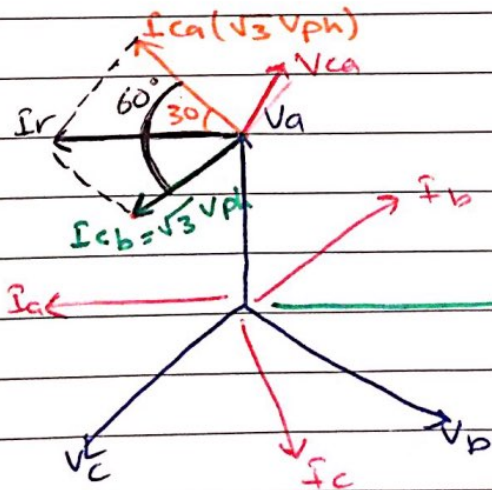 Ica (√3 Vph)
Vca
60°
30
Ir
Va
Icb = √3 Vph
Ib
Ia
Vc
Ic
Vb